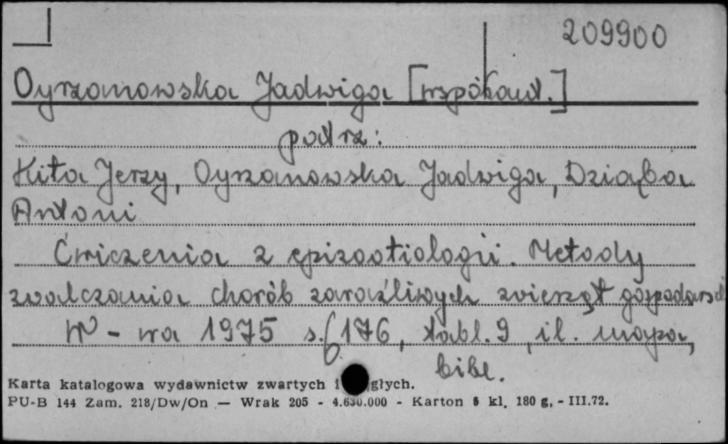 209900
Oyrzanowska Jadwiga [współaut.]
patrz:
Kita Jerzy, Oyrzanowska Jadwiga, Dziąba
Antoni
Ćwiczenia z epizootiologii. Metody
zwalczania chorób zaraźliwych zwierząt gospodarsk
W-wa 1975 s. 176, tabl. 9, il. mapa,
bibl.
Karta katalogowa wydawnictw zwartych i głych.
PU-B 144 Zam. 218/Dw/On — Wrak 205 - 4.630.000 - Karton 5 kl. 180 g. - III.72.